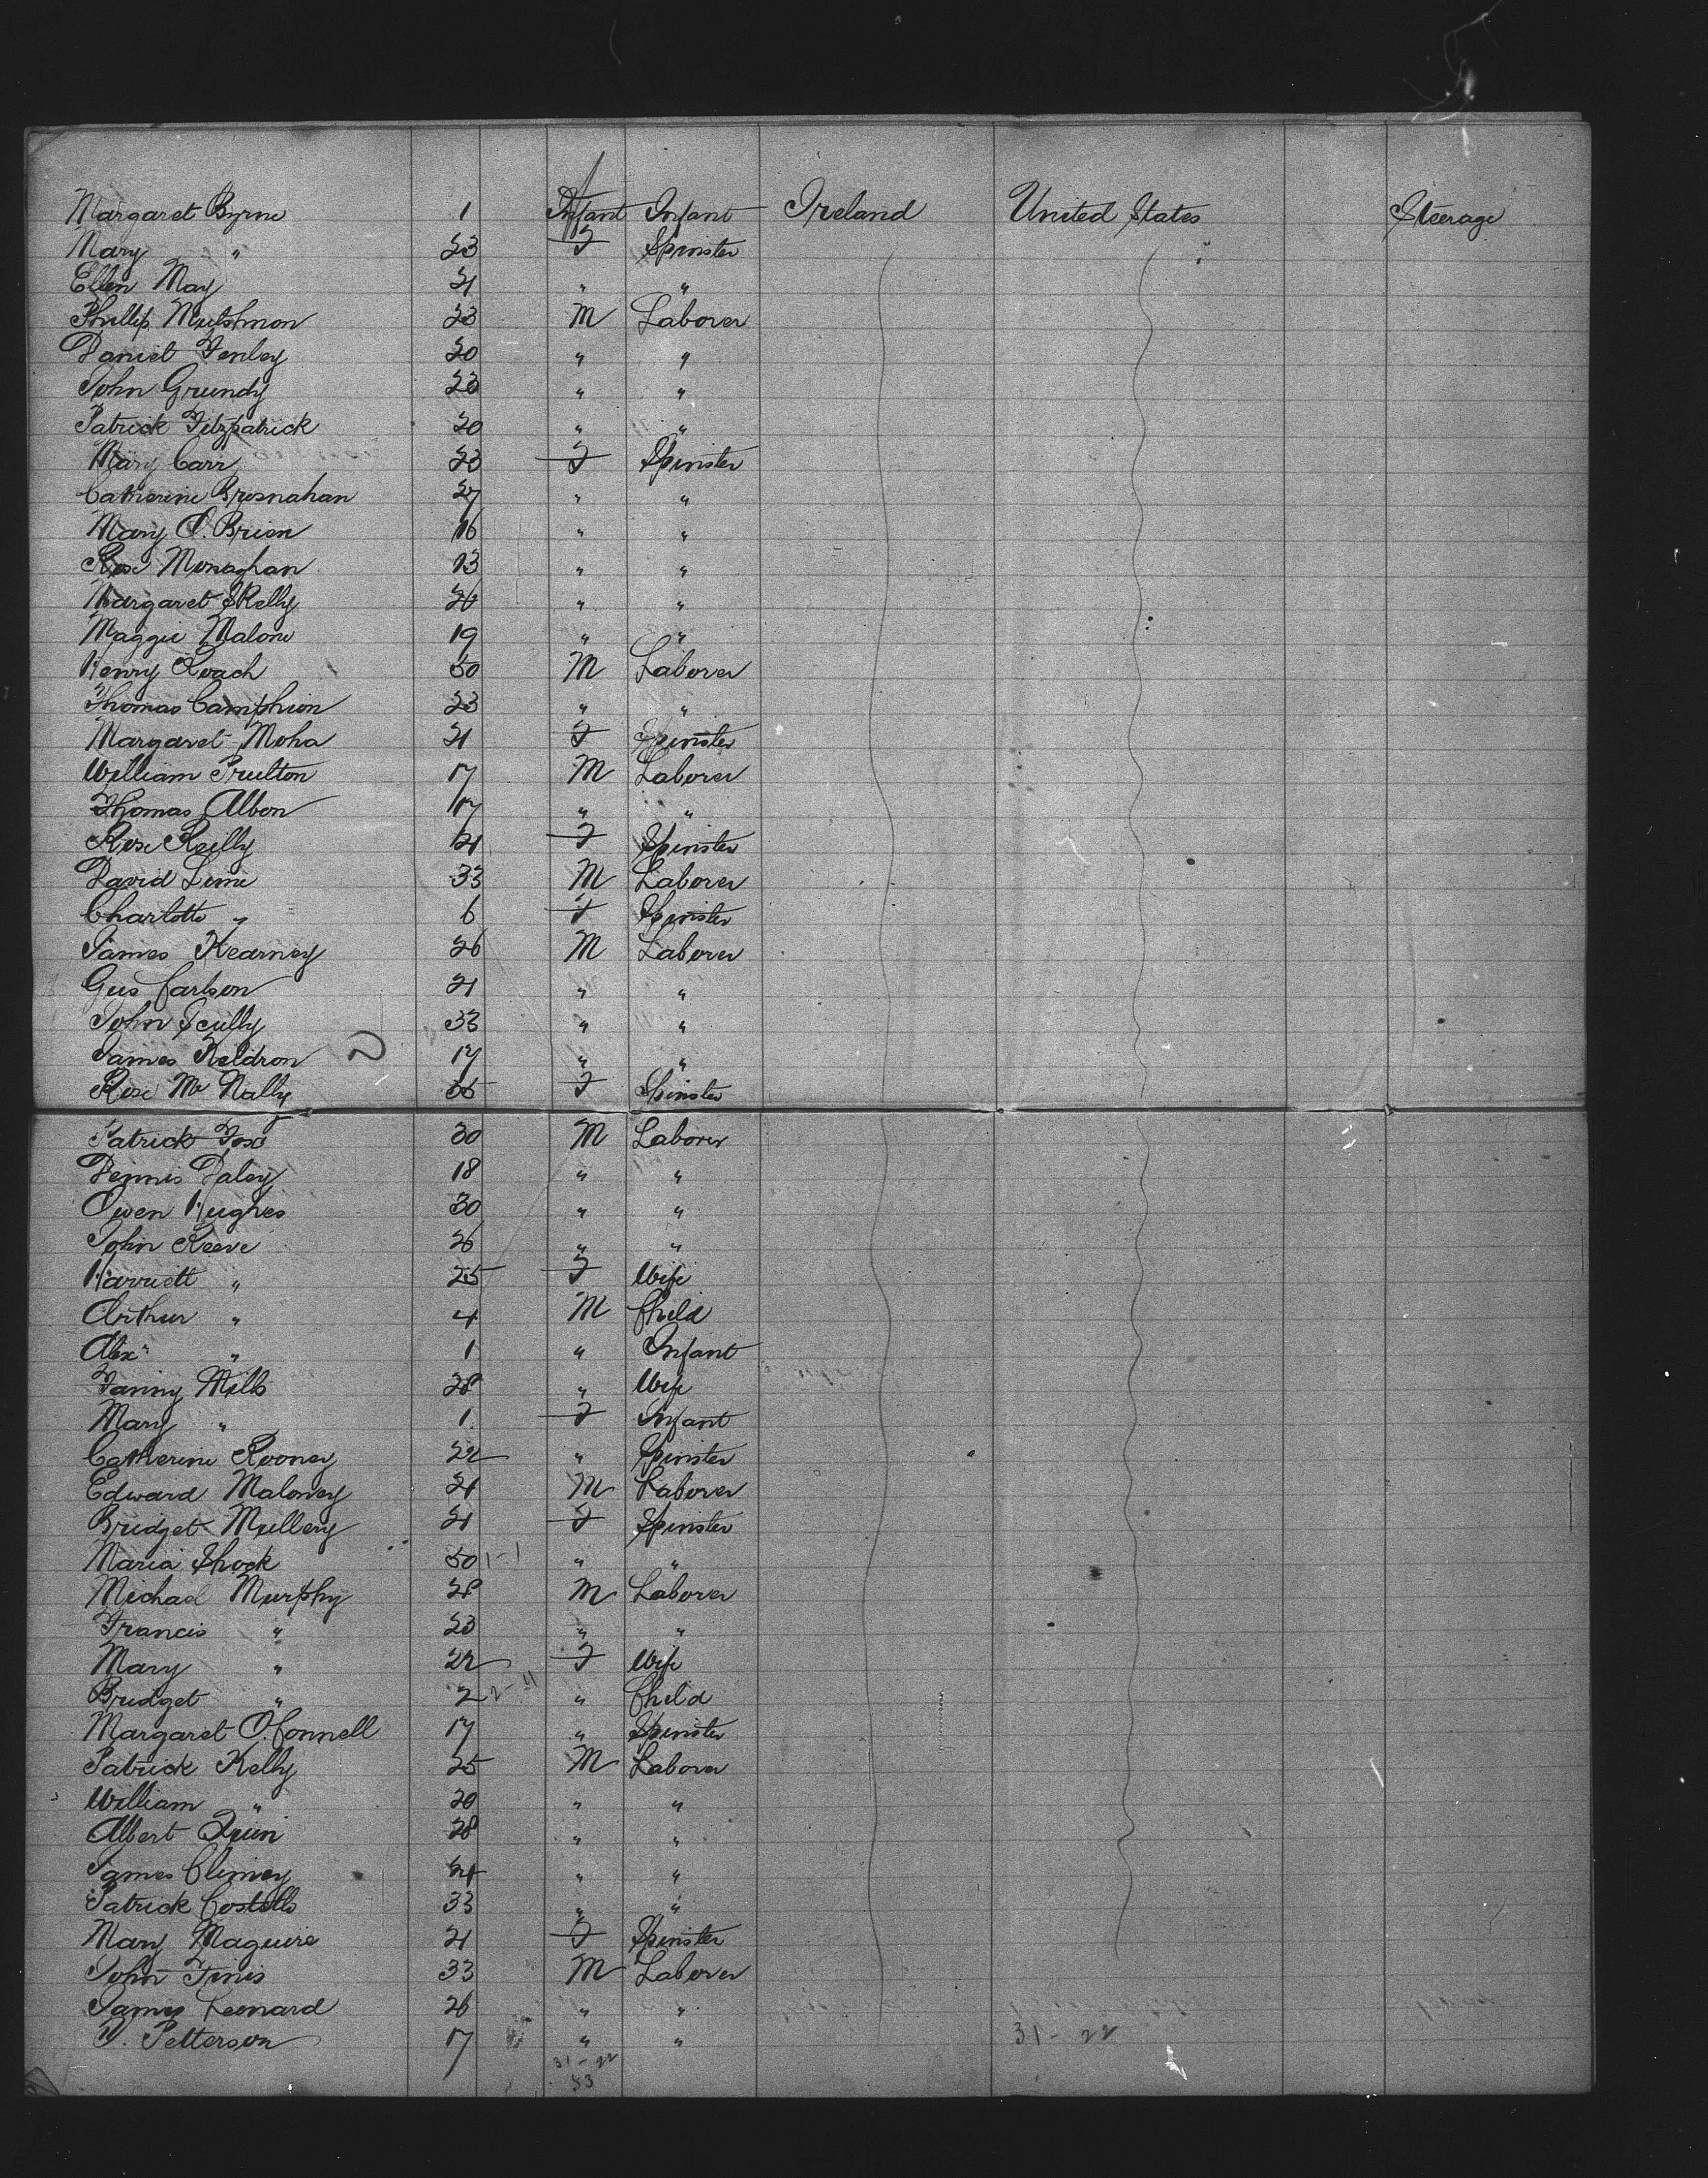 Margaret Byrne 1 Infant Infant Ireland United States Steerage
Mary " 23 F Spinster
Ellen May 21 " "
Phillip 23 M Laborer
Daniel Fenley 20 " "
John Grundy 23 " "
Patrick Fitzpatrick 20 " "
Mary Carr 23 F Spinster
Catherine Brusnahan 27 " "
Mary O. Brien 16 " "
Rose Monaghan 13 " "
Margaret Skelly 26 " "
Maggie Malone 19 " "
Henry Roach 50 M Laborer
Thomas Camphion 23 " "
Margaret Moha 21 F Spinster
William Prulton 17 M Laborer
Thomas Albon 17 " "
Rose Reilly 21 F Spinster
David Lime 33 M Laborer
Charlotte " 6 F Spinster
James Kearney 26 M Laborer
Gus Carlson 21 " "
John Scully 33 " "
James Keldron 17 " "
Rose Mc Nally 35 F Spinster
Patrick Fox 30 M Laborer
Dennis Daley 18 " "
Owen Hughes 30 " "
John Reeve 26 " "
Harriett " 25 F Wife
Arthur " 4 M Child
Alexr " 1 " Infant
Fanny Mills 28 " Wife
Mary " 1 F Infant
Catherine Rooney 22 " Spinster
Edward Maloney 21 M Laborer
Bridget Mullery 21 F Spinster
Maria Shock 50 1-1 " "
Michael Murphy 28 M Laborer
Francis " 23 " "
Mary " 22 F Wife
Bridget " 2 2-11 " Child
Margaret O. Connell 17 " Spinster
Patrick Kelly 25 M Laborer
William " 20 " "
Albert Quin 28 " "
James Climey 24 " "
Patrick Costello 33 " "
Mary Maguire 21 F Spinster
John Finis 33 M Laborer
James Leonard 26 " "
P. Petterson 17 " "
31-22 31-22
53